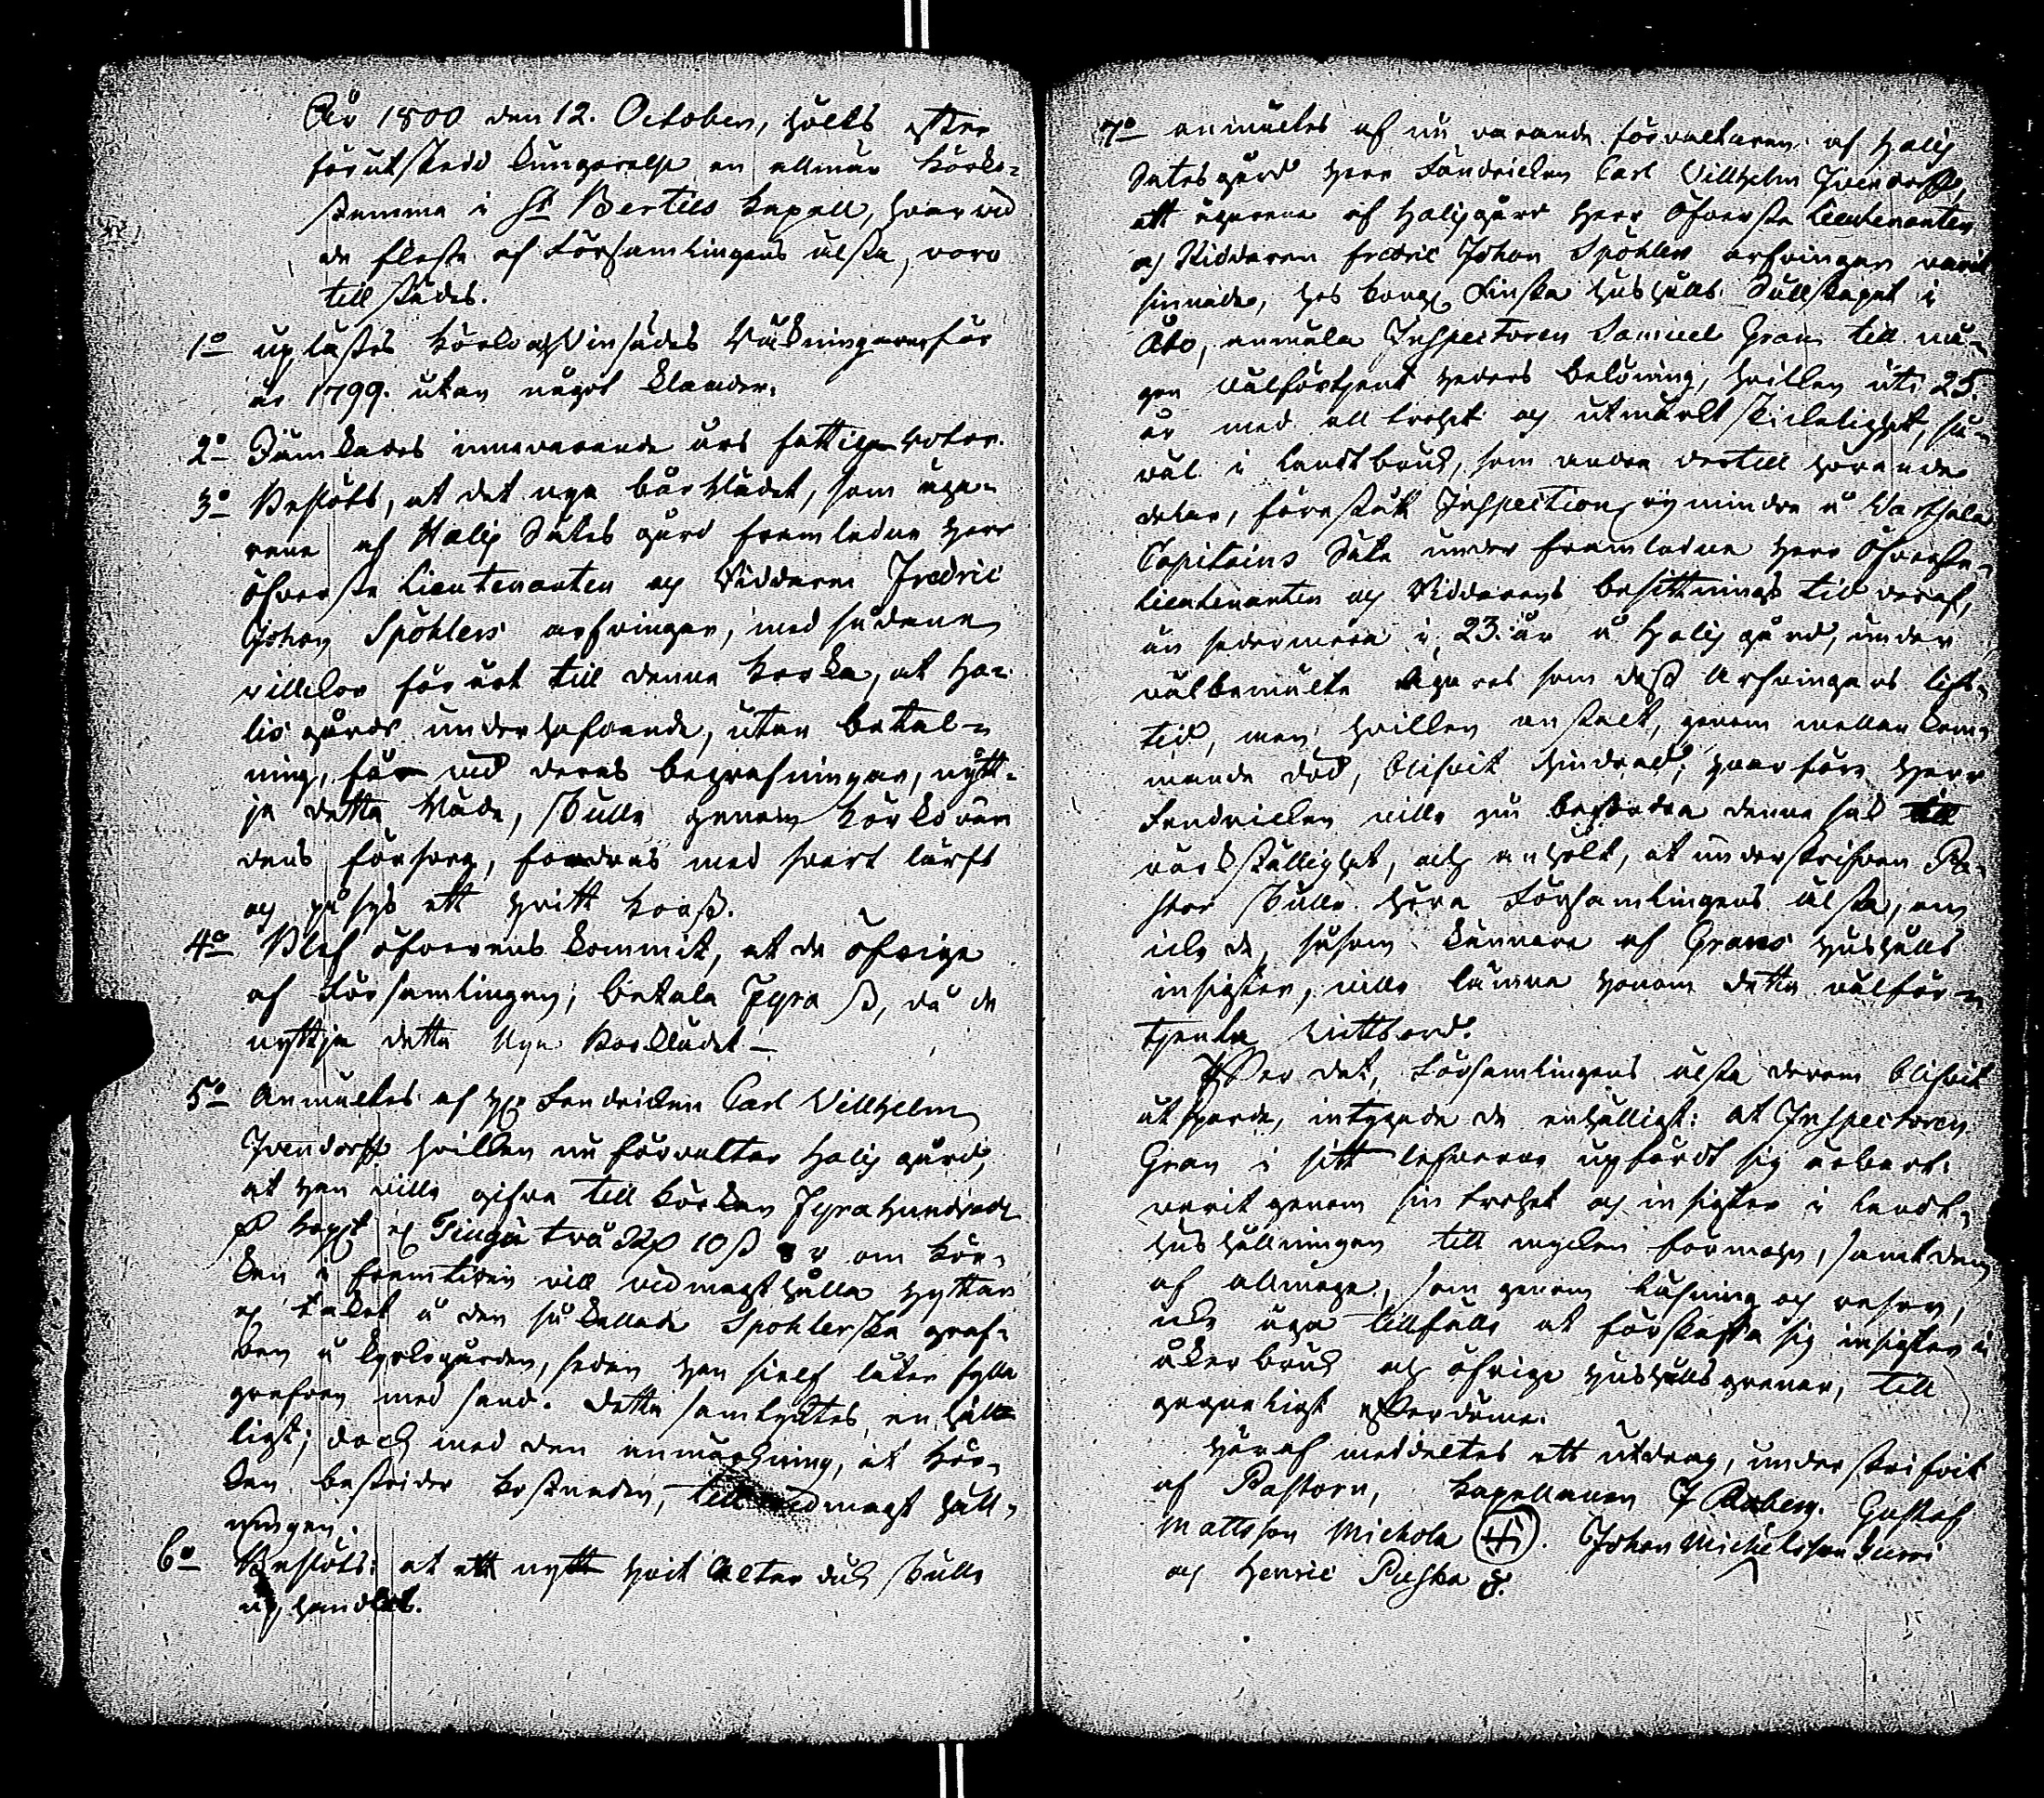 År 1800 den 12. October, hölts efter
förutskedd kungörelse en allmän körko-
stemma i St Bertils kapell, hvarvid
de fleste af Församlingens älsta, voro
till städes.
1o uplästes körko och Vinsädes Räkningarne för
år 1799. utan något klander.
2o Jämkades innevarande års fattige rotar.
3o Beslöts, at det nya bårklädet, som äga-
rene af Halis Sätes gård framledne Herr
öfverste Lieutenanten och Riddaren Fredric
Johan Spöhlers arfvingar, med sådane
villkor förärt till denne körka, at Ha-
lis gårds underhafvande, utan betal-
ning, får vid deras begrafningar, nytt-
ja detta kläde, skulle genom körkovär
dens försorg, fordras med svart lärft
och påsys ett hvitt kors.
4o Blef öfverens kommit, at de öfrige
af Församlingen, betala Fyra ß, då de
nyttja detta nya Bårklädet.
5o Anmältes af H:r Fendricken Carl Villhelm
Ivendorff hvilken nu förvaltar Halis gård,
at han ville gifva till körkan Fyrahundrade
och Tingu två 10 ß om kör-
kan i framtiden vill vidmagt hålla hyttan
och taket å den så kallade Spöhlerska graf-
ven å kyrkogården, sedan han sielf låter fylla
grafven med sand. Detta samtyktes enhäl-
ligt; doch med den anmärkning, at kör-
kan bestrider kostnaden, till vidmagt håll-
ningen.
6o Beslöts: at ett nytt hvit Altar duk skulle
uphandlas.
7o anmältes af nu varande förvaltaren af Halis
Sätes gård Herr Fändricken Carl Villhelm Ivendorff,
att ägarena af Halis gård Herr Öfverste Lieutenanten
och Riddaren Fredric Johan Spöhlers arfvingar varit
sinnade, hos kongl Finska hushålls Sällskapet i
Åbo, anmäla Inspectoren Samuel Gran till nå-
gon välförtjent heders belöning, hvilken uti 25
år med all trohet och utmärkt skickelighet, så-
väl i landtbruk, som andra dertill hörande
delar, förestått Inspection ej mindre å Vartsala
Capitains Säte under framledne Herr Öfverste-
Lieutenanten och Riddarens besittnings tid deraf,
än sedermera i 23. år å Halis gård, under
välbemälte Ägares som dess Arfvingars lifs-
tid, men hvilken anstalt, genom mellan kom-
mande död, blifvit hindrad; hvarföre Herr
Fendricken ville nu befordra denne sak till
värkställighet, och anhölt, at underskrifven Pa-
stor skulle höra Församlingens älsta, om
icke de, såsom kännare af Grans hushålls
insigter, ville lämna honom detta välför-
tjenta vittsord.
Efter det, Församlingens älsta derom blifvit
åtsporde, intygade de enhälligt: at Inspectoren
Gran i sitt lefverne upfördt sig ärbart.
varit genom sin trohet och insigter i landt-
hushållningen till mycken förmohn, samt dem
af allmoge, som genom läsning och ,
icke äga tillfälle at förskaffa sig insigter i
åker bruk och öfrige hushålls grenar, till
gagneligt efterdöme.
Häraf meddeltes ett utdrag, underskrifvit
af Pastorn, Kapellanen J Gustaf
Mattsson Michola. Johan Michelsson Jussi
och Henric Puska.